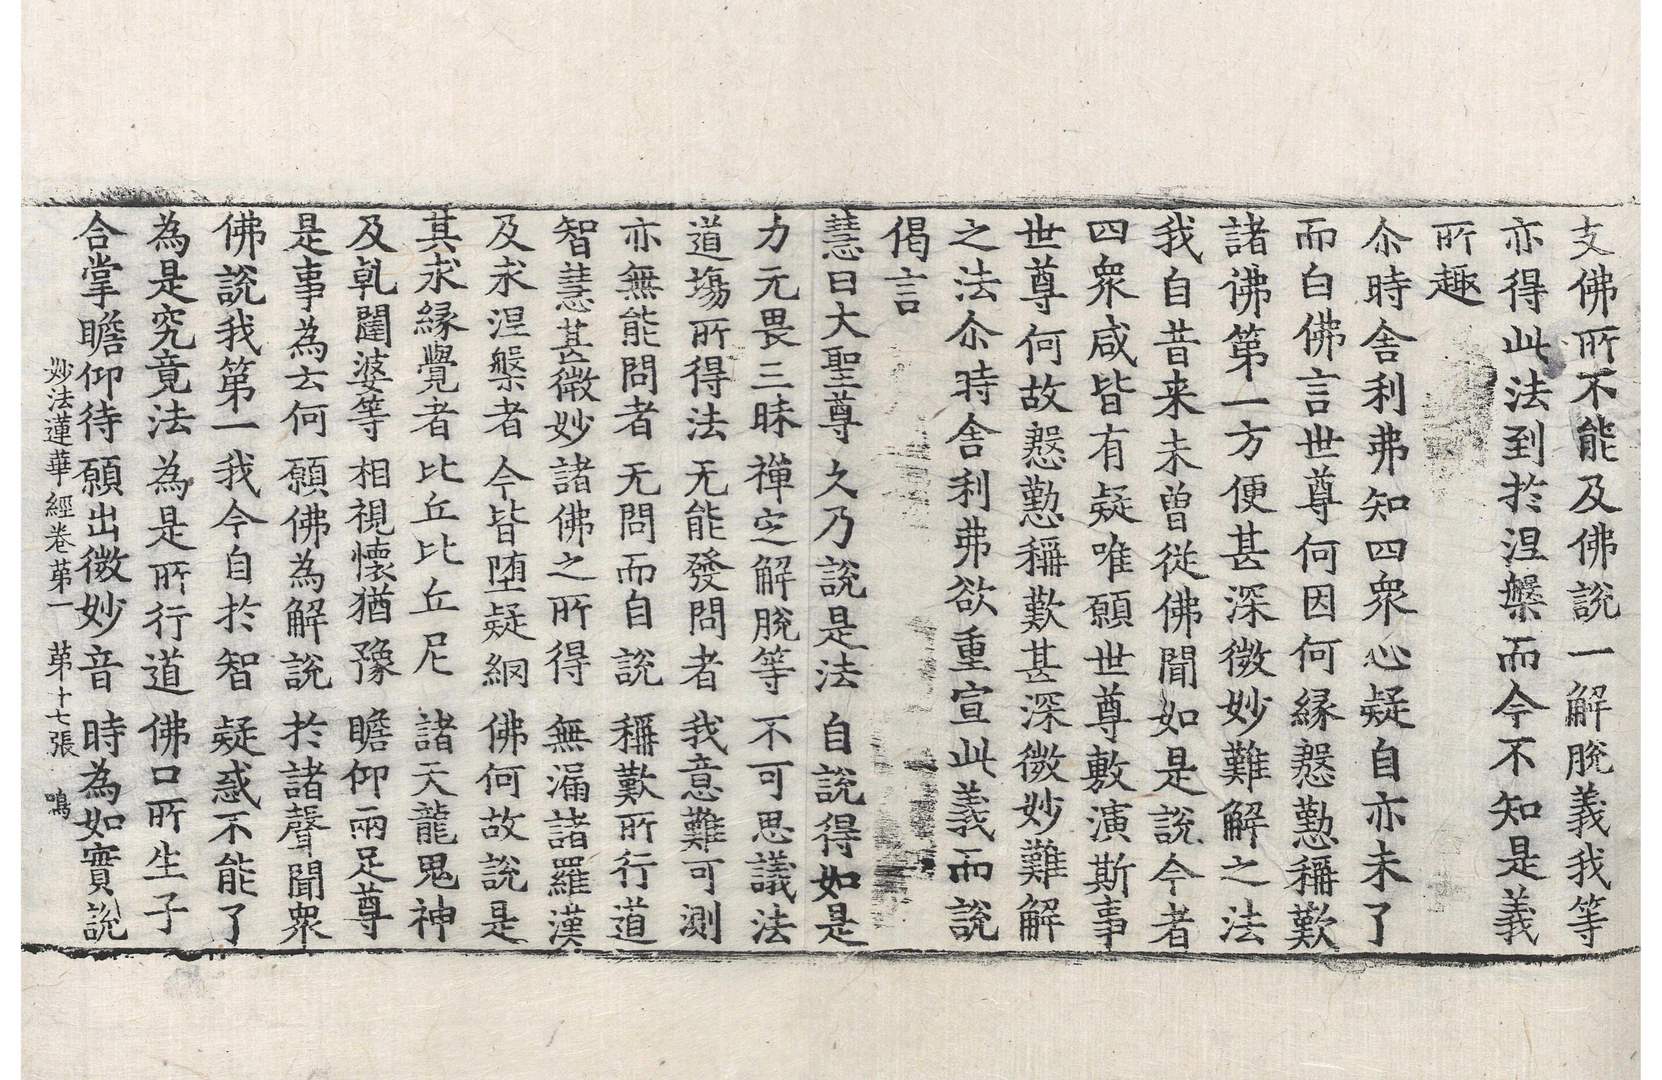 支佛所不能及佛說一解脫義我等
亦得此法到於涅槃而今不知是義
所趣
尒時舍利弗知四衆心疑自亦未了
而白佛言世尊何因何縁慇懃稱歎
諸佛第一方便甚深微妙難解之法
我自昔来未曽從佛聞如是說今者
四衆咸皆有疑唯願世尊敷演斯事
世尊何故慇懃稱歎甚深微妙難解
之法尒時舍利弗欲重宣此義而說
偈言
慧日大聖尊 久乃說是法 自說得如是
力无畏三昧 禪定解脫等 不可思議法
道場所得法 无能發問者 我意難可測
亦無能問者 无問而自說 稱歎所行道
智慧甚微妙 諸佛之所得 無漏諸羅漢
及求涅槃者 今皆堕疑網 佛何故說是
其求縁覺者 比丘比丘尼 諸天龍鬼神
及乹闥婆等 相視懷猶豫 瞻仰兩足尊
是事為云何 願佛為解說 於諸聲聞衆
佛說我第一 我今自於智 疑惑不能了
為是究竟法 為是所行道 佛口所生子
合掌瞻仰待 願出微妙音 時為如實說
妙法蓮華經卷苐一 苐十七張 鳴